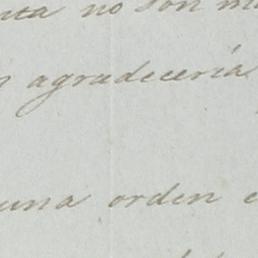 no son
agradecería
una orden